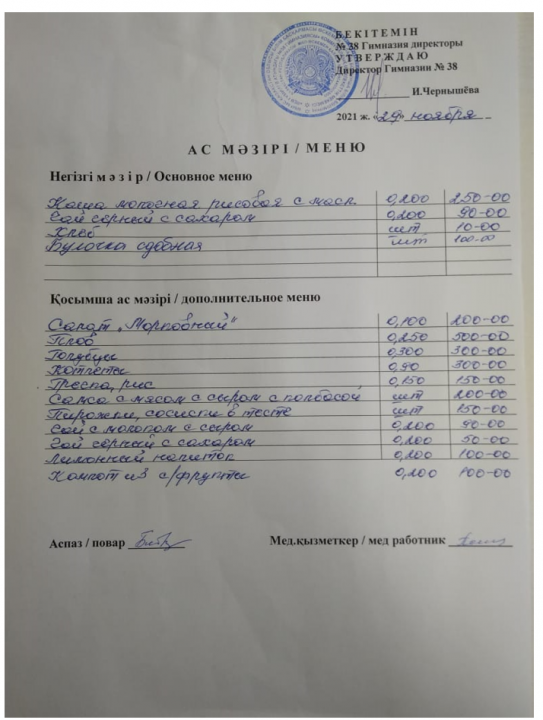 БЕКІТЕМІН
№ 38 Гимназия директоры
УТВЕРЖДАЮ
Директор Гимназии № 38
И.Чернышёва
2021 ж. «29» ноября
АС МӘЗІРІ / МЕНЮ
Негізгі мәзір / Основное меню
Каша молочная рисовая с маслом 0,200 250-00
Чай чёрный с сахаром 0,200 90-00
Хлеб шт 10-00
Булочка сдобная шт 100-00
Қосымша ас мәзірі / дополнительное меню
Салат „Морковный“ 0,100 200-00
Плов 0,250 500-00
Голубцы 0,300 300-00
Котлеты 0,90 300-00
Гречка, рис 0,150 150-00
Самса с мясом с сыром с колбасой шт 200-00
Пирожки, сосиски в тесте шт 150-00
Чай с молоком с сыром 0,200 90-00
Чай чёрный с сахаром 0,200 50-00
Лимонный напиток 0,200 100-00
Компот из с/фрукты 0,200 100-00
Аспаз / повар
Мед.қызметкер / мед работник